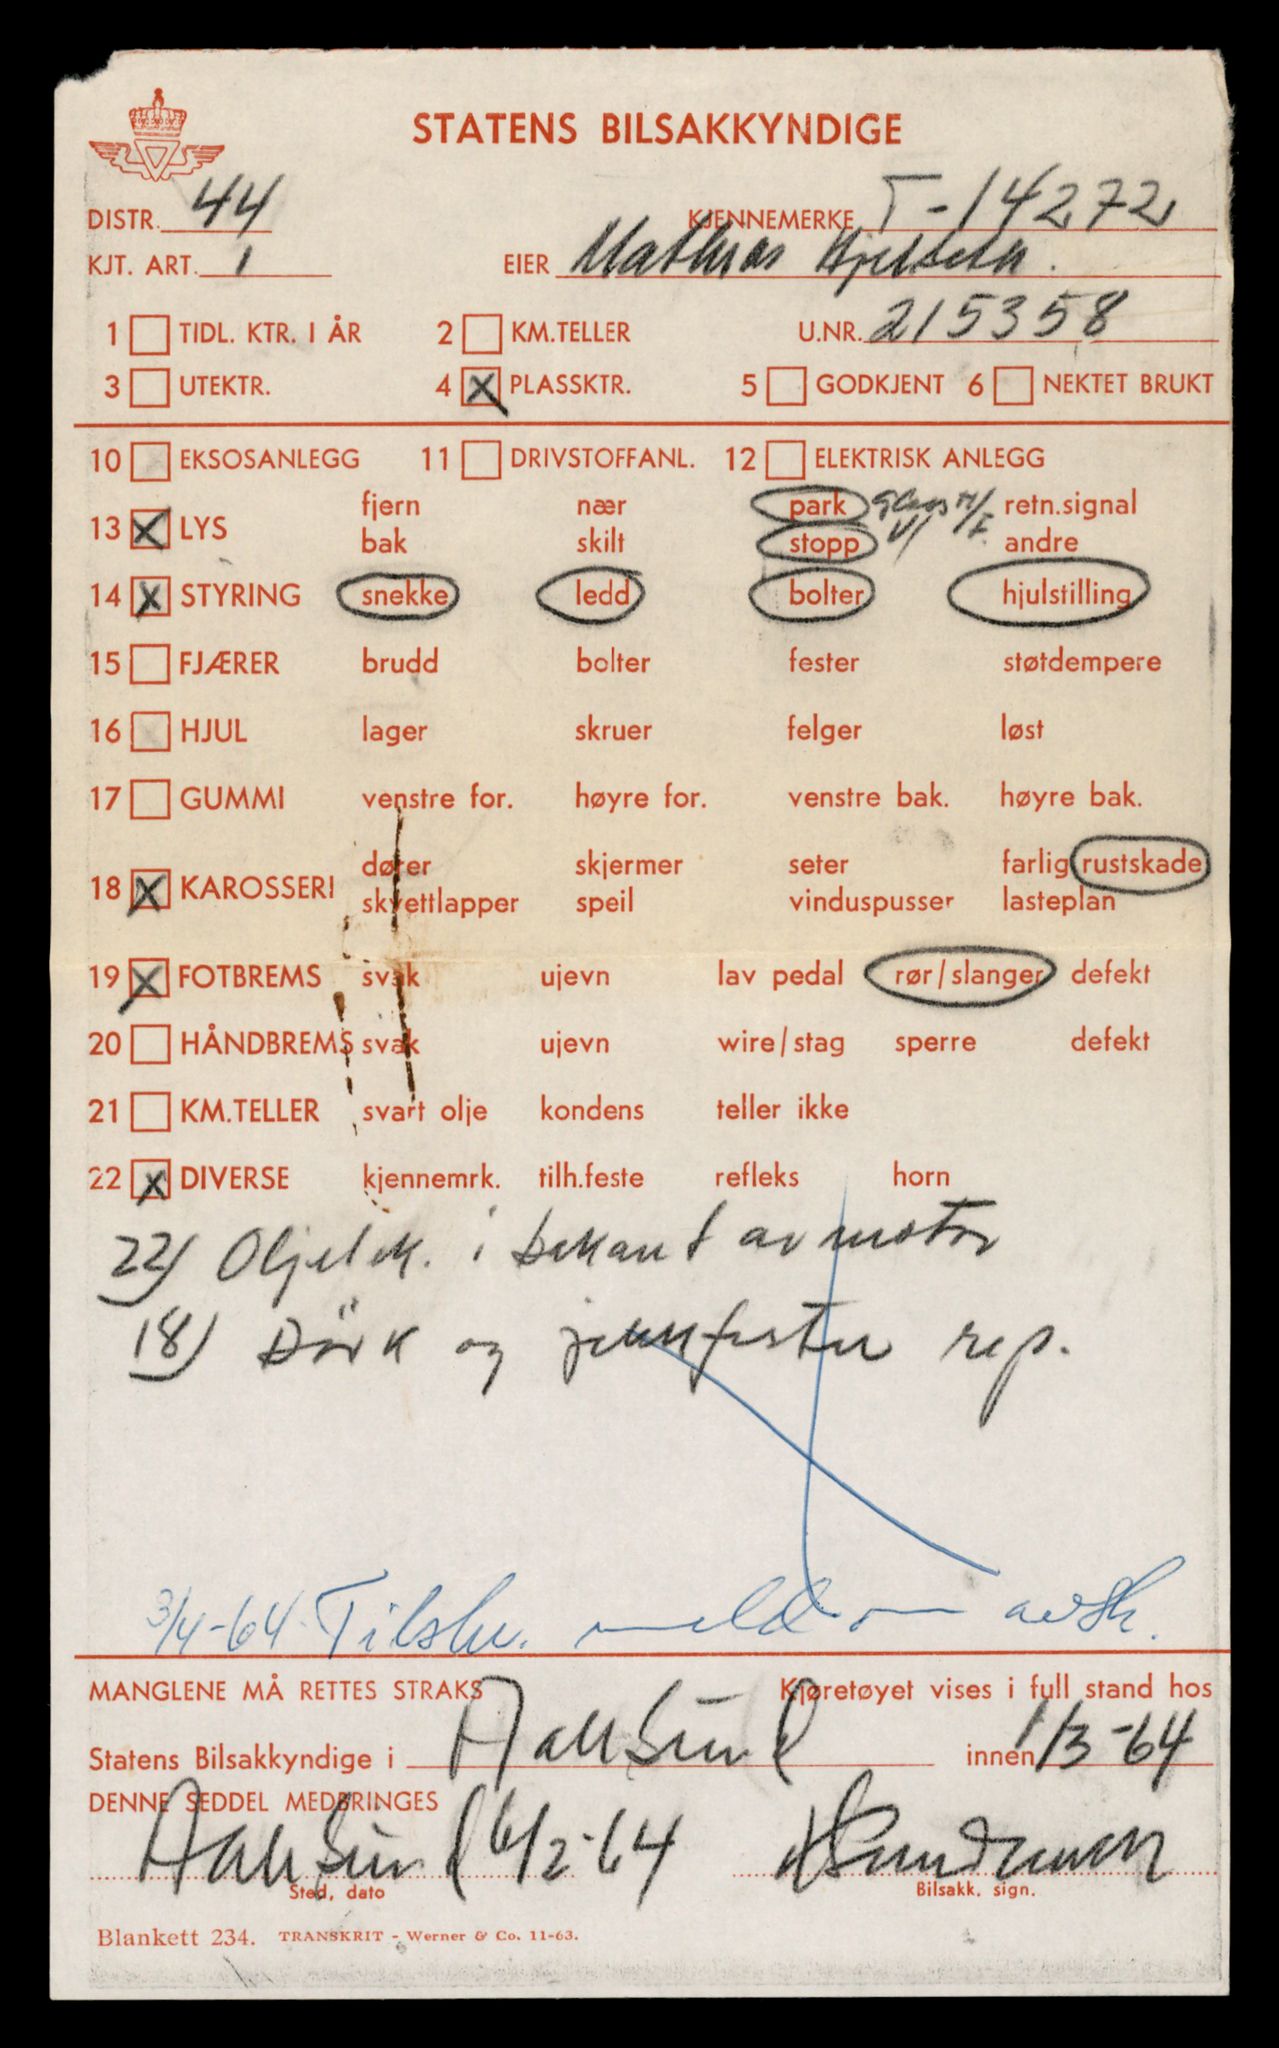 STATENS BILSAKKYNDIGE
DISTR. 44 KJENNEMERKE T-14272
KJT. ART. 1 EIER Mathias Hjelseth.
1 TIDL. KTR. I ÅR 2 KM.TELLER U.NR. 215358
3 UTEKTR. 4 X PLASSKTR. 5 GODKJENT 6 NEKTET BRUKT
10 EKSOSANLEGG 11 DRIVSTOFFANL. 12 ELEKTRISK ANLEGG
fjern nær park glass H/F retn.signal
13 X LYS
bak skilt stopp V/ andre
14 X STYRING snekke ledd bolter hjulstilling
15 FJÆRER brudd bolter fester støtdempere
16 HJUL lager skruer felger løst
17 GUMMI venstre for. høyre for. venstre bak. høyre bak.
dører skjermer seter farlig rustskade
18 X KAROSSERI
skvettlapper speil vinduspusser lasteplan
19 X FOTBREMS svak ujevn lav pedal rør/slanger defekt
20 HÅNDBREMS svak ujevn wire/stag sperre defekt
21 KM.TELLER svart olje kondens teller ikke
22 X DIVERSE kjennemrk. tilh.feste refleks horn
22) Oljelek. i bekant av motor
18) Dörk og rep.
3/4-64 Tilskr. meld om avsk.
MANGLENE MÅ RETTES STRAKS Kjøretøyet vises i full stand hos
Statens Bilsakkyndige i Aalesund innen 1/3-64
DENNE SEDDEL MEDBRINGES
Aalesund 6/2-64
Sted, dato Bilsakk. sign.
Blankett 234. TRANSKRIT - Werner & Co. 11-63.